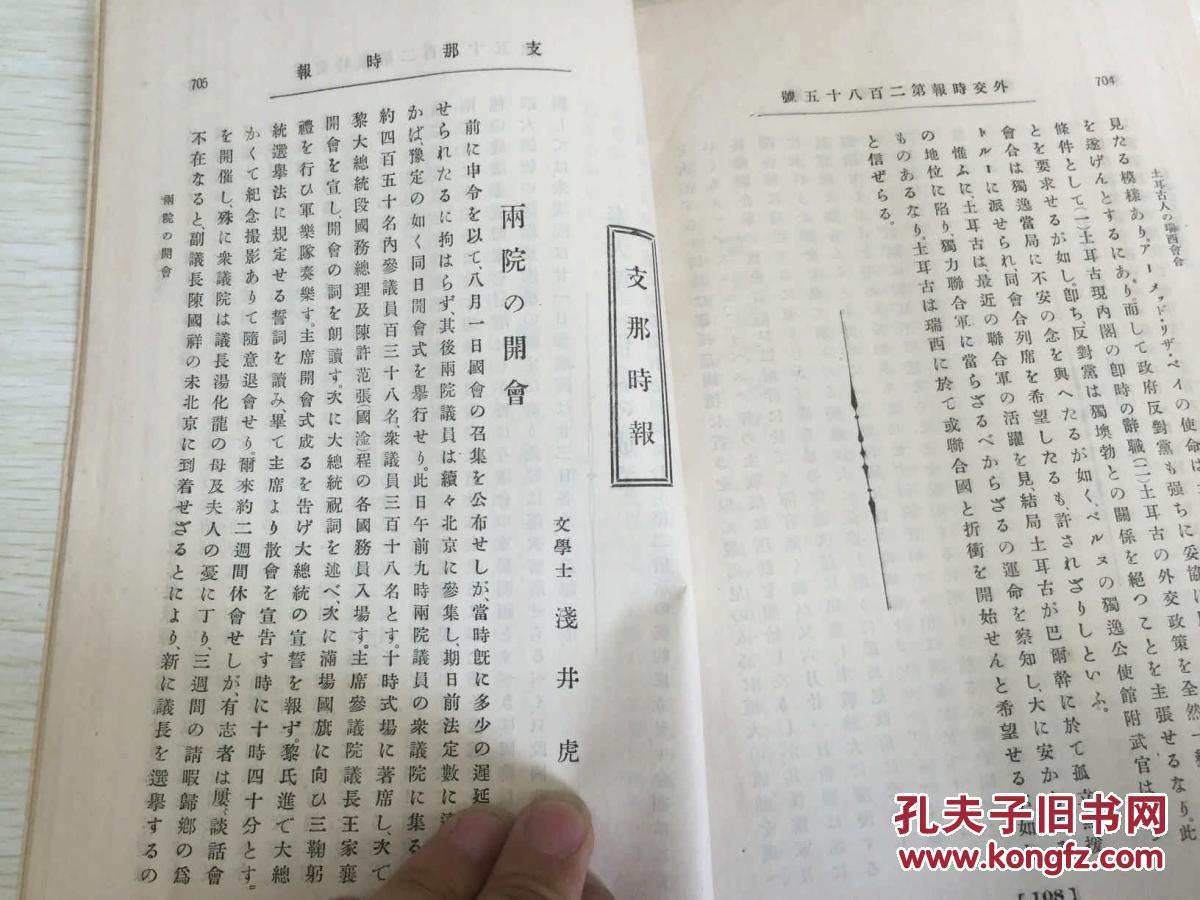 704
外交時報第二百八十五號
土耳古人の瑞西會合
見たる模樣あり、アーメッド・リザ・ベイの使命は
を遂げんとするにあり、而して政府反對黨も强ちに妥協
條件として(一)土耳古現內閣の卽時の辭職(二)土耳古の外交政策を全然一
とを要求せるが如し。卽ち、反對黨は獨墺勃との關係を絕つことを主張せるなり。此
會合は獨逸當局に不安の念を與へたるが如く、ベルヌの獨逸公使館附武官は
トルーに派せられ、同會合列席を希望したるも、許されざりしといふ。
惟ふに、土耳古は、最近の聯合軍の活躍を見、結局土耳古が巴爾幹に於て孤立
の地位に陷り、獨力聯合軍に當らざるべからざるの運命を察知し、大に安か
ものあるなり、土耳古は瑞西に於て或聯合國と折衝を開始せんと希望せる
と信ぜらる。
[108]
支那時報
705
支那時報
文學士 淺井虎
兩院の開會
前に申令を以て、八月一日國會の召集を公布せしが、當時旣に多少の遲延
せられたるに拘はらず、其後兩院議員は續々北京に參集し、期日前法定數に
かば、豫定の如く同日開會式を擧行せり。此日午前九時兩院議員の衆議院に集る
約四百五十名內參議員百三十八名、衆議員三百十八名とす。十時式場に著席し、次で
黎大總統段國務總理及陳許范張(國淦)程の各國務員入場す。主席參議院議長王家襄
開會を宣し、開會の詞を朗讀す。次に大總統祝詞を述べ、次に滿場國旗に向ひ三鞠躬
禮を行ひ軍樂隊奏樂す。主席開會式成るを告げ大總統の宣誓を報ず。黎氏進で大總
統選擧法に規定せる誓詞を讀み、畢て主席より散會を宣告す時に十時四十分とす。
かくて紀念撮影ありて隨意退會せり。爾來約二週間休會せしが、有志者は屢、談話會
を開催し、殊に衆議院は議長湯化龍の母及夫人の憂に丁り、三週間の請暇歸鄕の爲
不在なると、副議長陳國祥の未北京に到着せざるとにより、新に議長を選擧するの
兩院の開會
孔夫子旧书网
kongfz.com